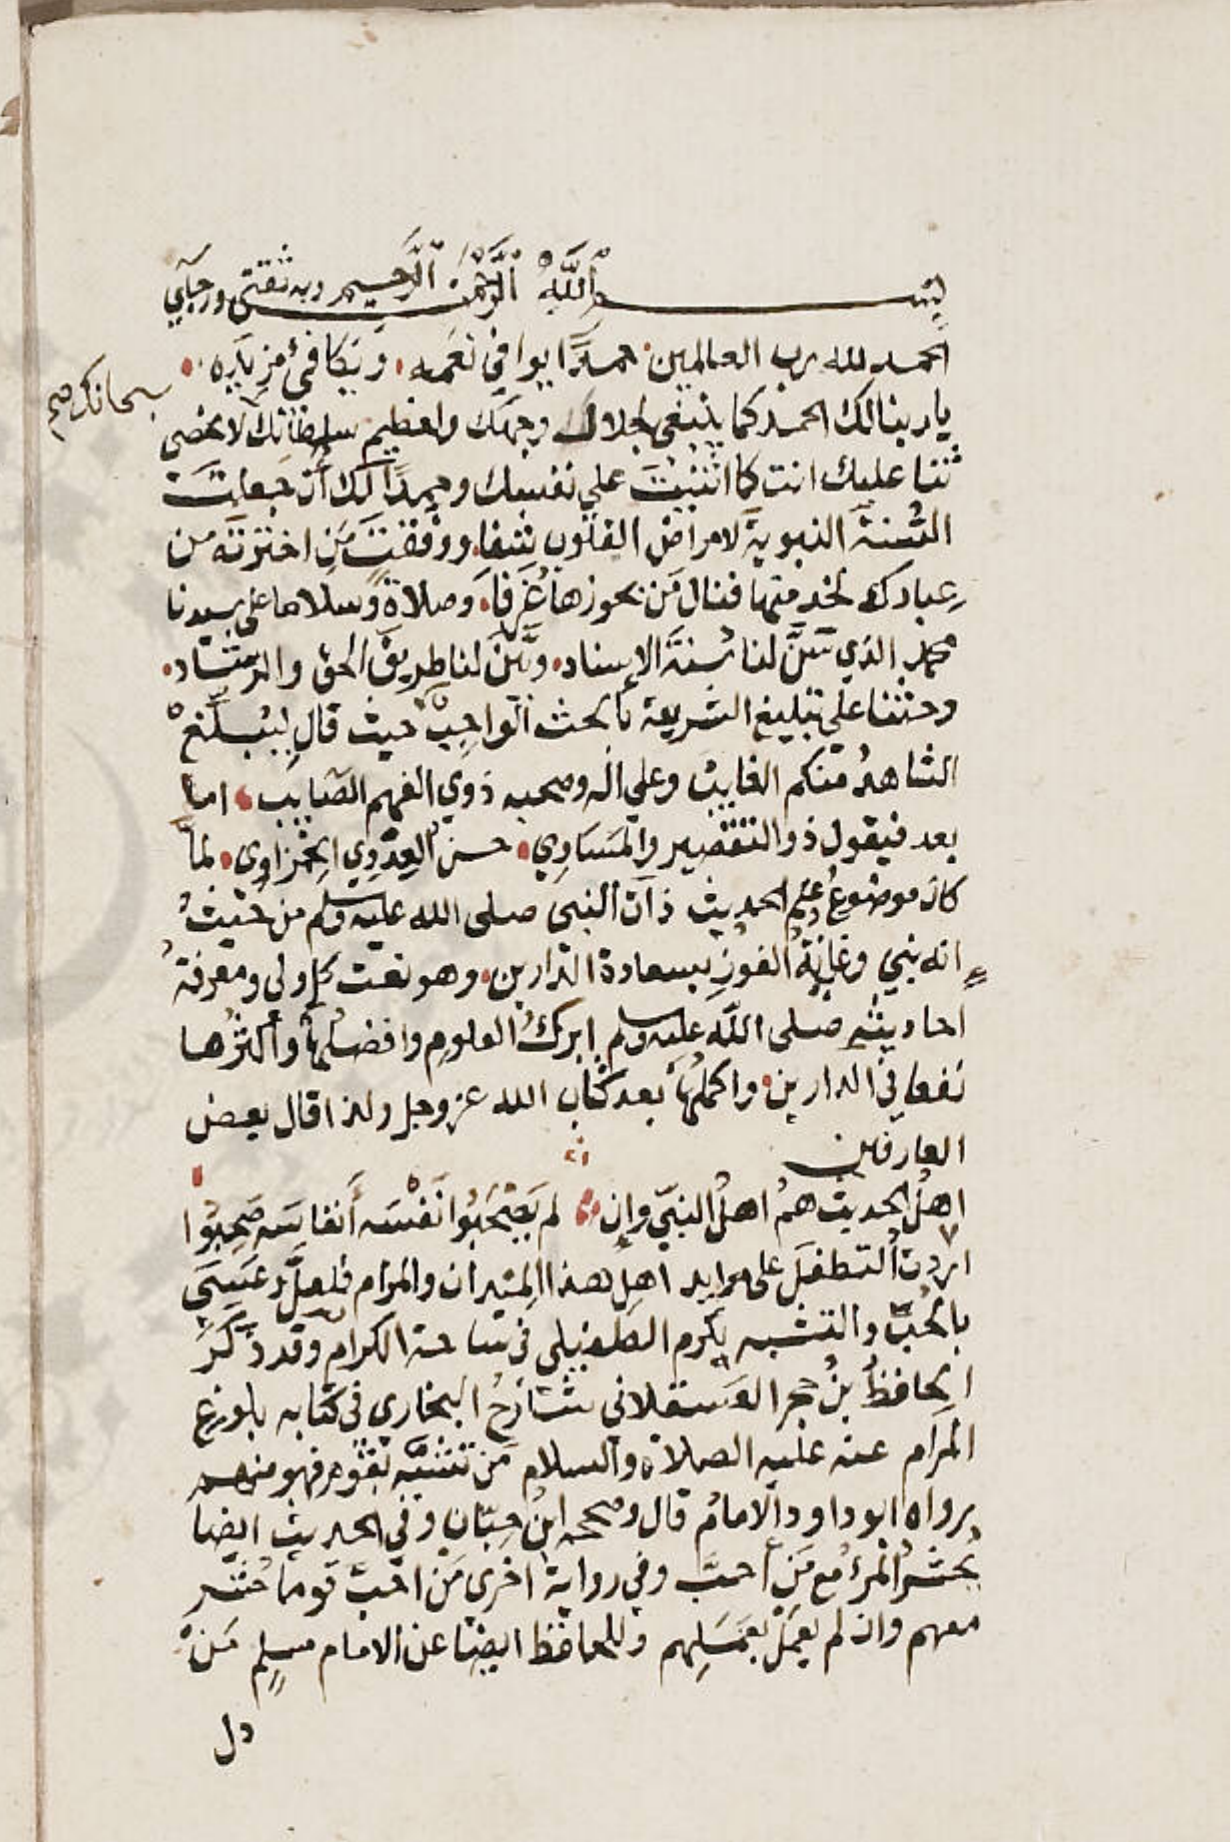 بسم الله الرحمن الرحيم وبه ثقتي ورجآي
الحمد لله رب العالمين حمدًا يوافي نعمه ويكافئ مزيده
يا ربنا لك الحمد كما ينبغي لجلال وجهك ولعظيم سلطانك لا نحصي
سبحانك صح
ثنا عليك انت كما اثنيت علي نفسك وحمدًا لك أن جعلت
السُنة النبوية لامراض القلوب شفا ووفقت مَن اخترته من
عبادك لخدمتها فنال مَن يحوزها غُرفًا وصلاةً وسلاما على سيدنا
محمد الذي سَنَّ لنا سُنةَ الإسناد وبيَّن لنا طريق الحق والرشاد
وحثنا على تبليغ الشريعة بالحث الواجب حيث قال لِيُبلّغ
الشاهدُ منكم الغايبَ وعلي اله وصحبه ذوي الفهم الصّايب اما
بعد فيقول ذو التقصير والمَسَاوِي حسن العِدْوي الحمزاوي لمّا
كان موضوعُ علم الحديث ذات النبي صلى الله عليه وسلم من حيثُ
انه نبي وغايةُ الفوزِ بسعادة الدارين وهو نعت كل ولي ومعرفةُ
احاديثه صلى الله عليه وسلم ابركُ العلوم وافضلُها وأكثرُها
نفعا في الدارين واكملُها بعد كتاب الله عز وجل ولذا قال بعض
العارفين
اهلُ الحديث همُ اهلُ النبيّ وإن لم يَصْحَبُوا نَفْسَه أَنفاسَه صَحِبُوا
اردتُ التطفلَ على موايد اهل هذا الميدان والمرام فلعلَّ وعَسَى
بالحُبّ والتشبه يكرم الطفيلى في ساحة الكرام وقد ذكَرَ
الحافظُ بنُ حجر العَسقلاني شارحُ البخاري في كتابه بلوغِ
المرَام عنه عليه الصلاة والسلام مَن تشبّه بقومٍ فهو منهم
رواه ابو داود الامامُ قال وصححه ابنُ حِبّان وفي الحديث ايضا
يُحشرُ المرءُ مع مَن أحبَّ وفي رواية اخرى مَن احَبَّ قوما حُشر
معهم وان لم يَعمَلْ بِعَمَلِهم وللحافظ ايضا عن الامام مسلمٍ مَنْ
دل